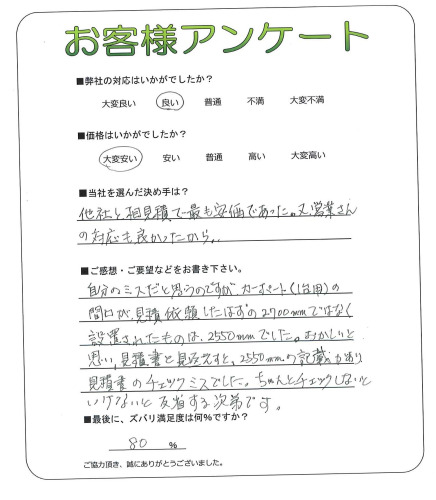 お客様アンケート
■弊社の対応はいかがでしたか?
大変良い 良い 普通 不満 大変不満
■価格はいかがでしたか?
大変安い 安い 普通 高い 大変高い
■当社を選んだ決め手は?
他社と相見積で最も安価であった。又営業さん
の対応も良かったから、、
■ご感想・ご要望などをお書き下さい。
自分のミスだと思うのですが、カーポート(1台用)の
間口が、見積依頼したはずの2700mmではなく
設置されたものは、2550mmでした。おかしいと
思い、見積書を見返すと、2550mmの記載があり
見積書のチェックミスでした。ちゃんとチェックしないと
いけないと反省する次第です。
■最後に、ズバリ満足度は何%ですか?
80 %
ご協力頂き、誠にありがとうございました。